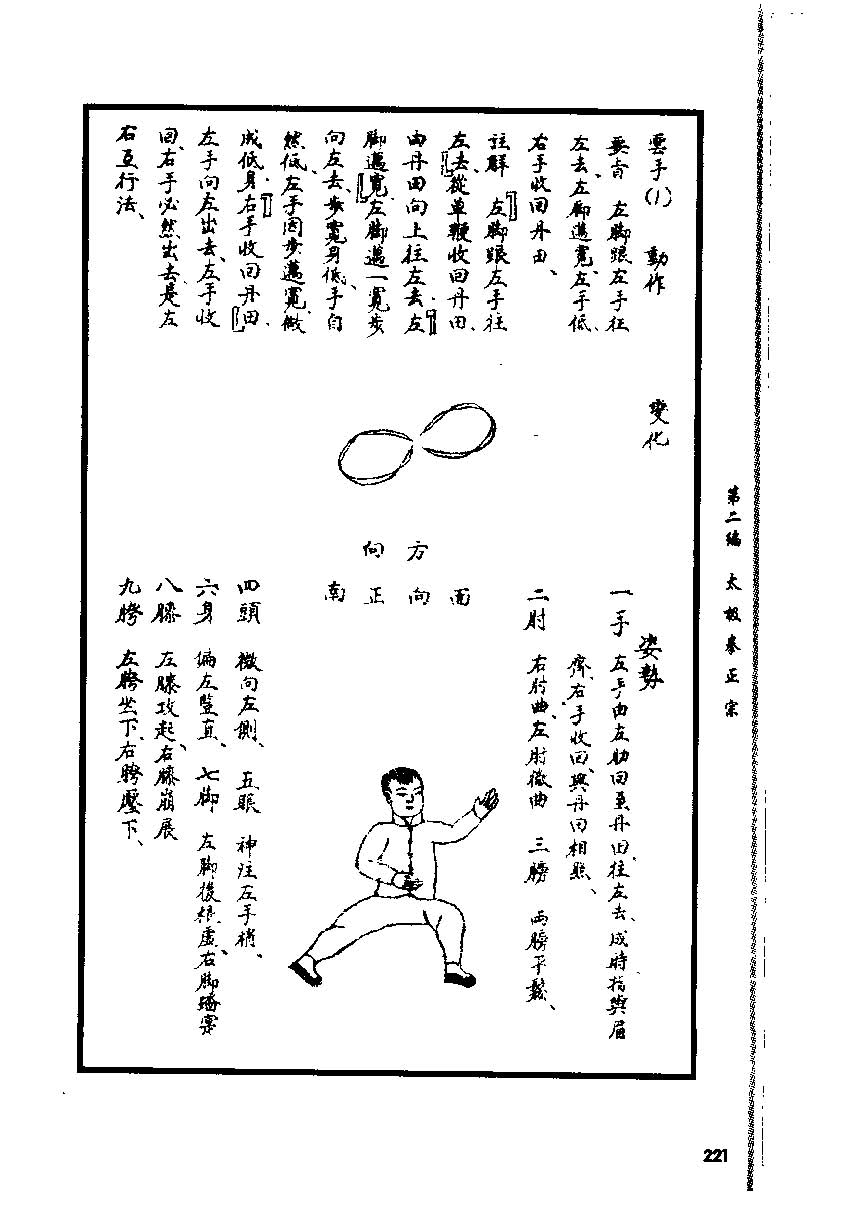 雲手(1) 動作
要言 左脚跟左手往
左去、左脚邁寬、左手低、
右手收回丹田、
註解 左脚跟左手往
左去、從單鞭收回丹田、
由丹田向上往左去、左
脚邁寬、左脚邁一寬步
向左去、步寬身低、手自
然低、左手因步邁寬、微
成低身、右手收回丹田、
左手向左出去、左手收
回、右手必然出去、是左
右互行法、
變化
方向
面向正南
姿勢
一手 左手由左肋回至丹田、往左去、成時指與眉
齊、右手收回、與丹田相照、
二肘 右肘曲、左肘微曲 三膀 兩膀平鬆、
四頭 微向左側、 五眼 神注左手梢、
六身 偏左豎直、 七脚 左脚後根虛、右脚蹯實
八膝 左膝攻起、右膝崩展
九胯 左胯坐下、右胯壓下、
第二编 太极拳正宗
221